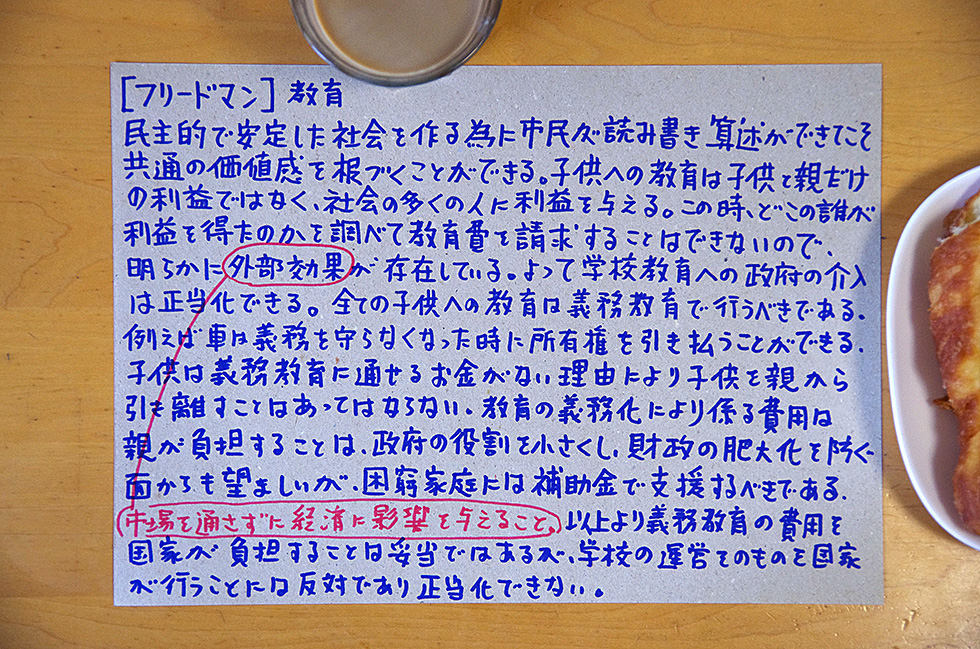 [フリードマン] 教育
民主的で安定した社会を作る為に市民が読み書き算述ができてこそ
共通の価値感を根づくことができる。子供への教育は子供と親だけ
の利益ではなく、社会の多くの人に利益を与える。この時、どこの誰が
利益を得たのかを調べて教育費を請求することはできないので、
明らかに外部効果が存在している。よって学校教育への政府の介入
は正当化できる。全ての子供への教育は義務教育で行うべきである.
例えば車は義務を守らなくなった時に所有権を引き払うことができる.
子供は義務教育に通せるお金がない理由により子供を親から
引き離すことはあってはならない.教育の義務化により係る費用は
親が負担することは、政府の役割を小さくし、財政の肥大化を防ぐ
面からも望ましいが、困窮家庭には補助金で支援するべきである.
市場を通さずに経済に影響を与えること。以上より義務教育の費用を
国家が負担することは妥当ではあるが、学校の運営そのものを国家
が行うことには反対であり正当化できない。